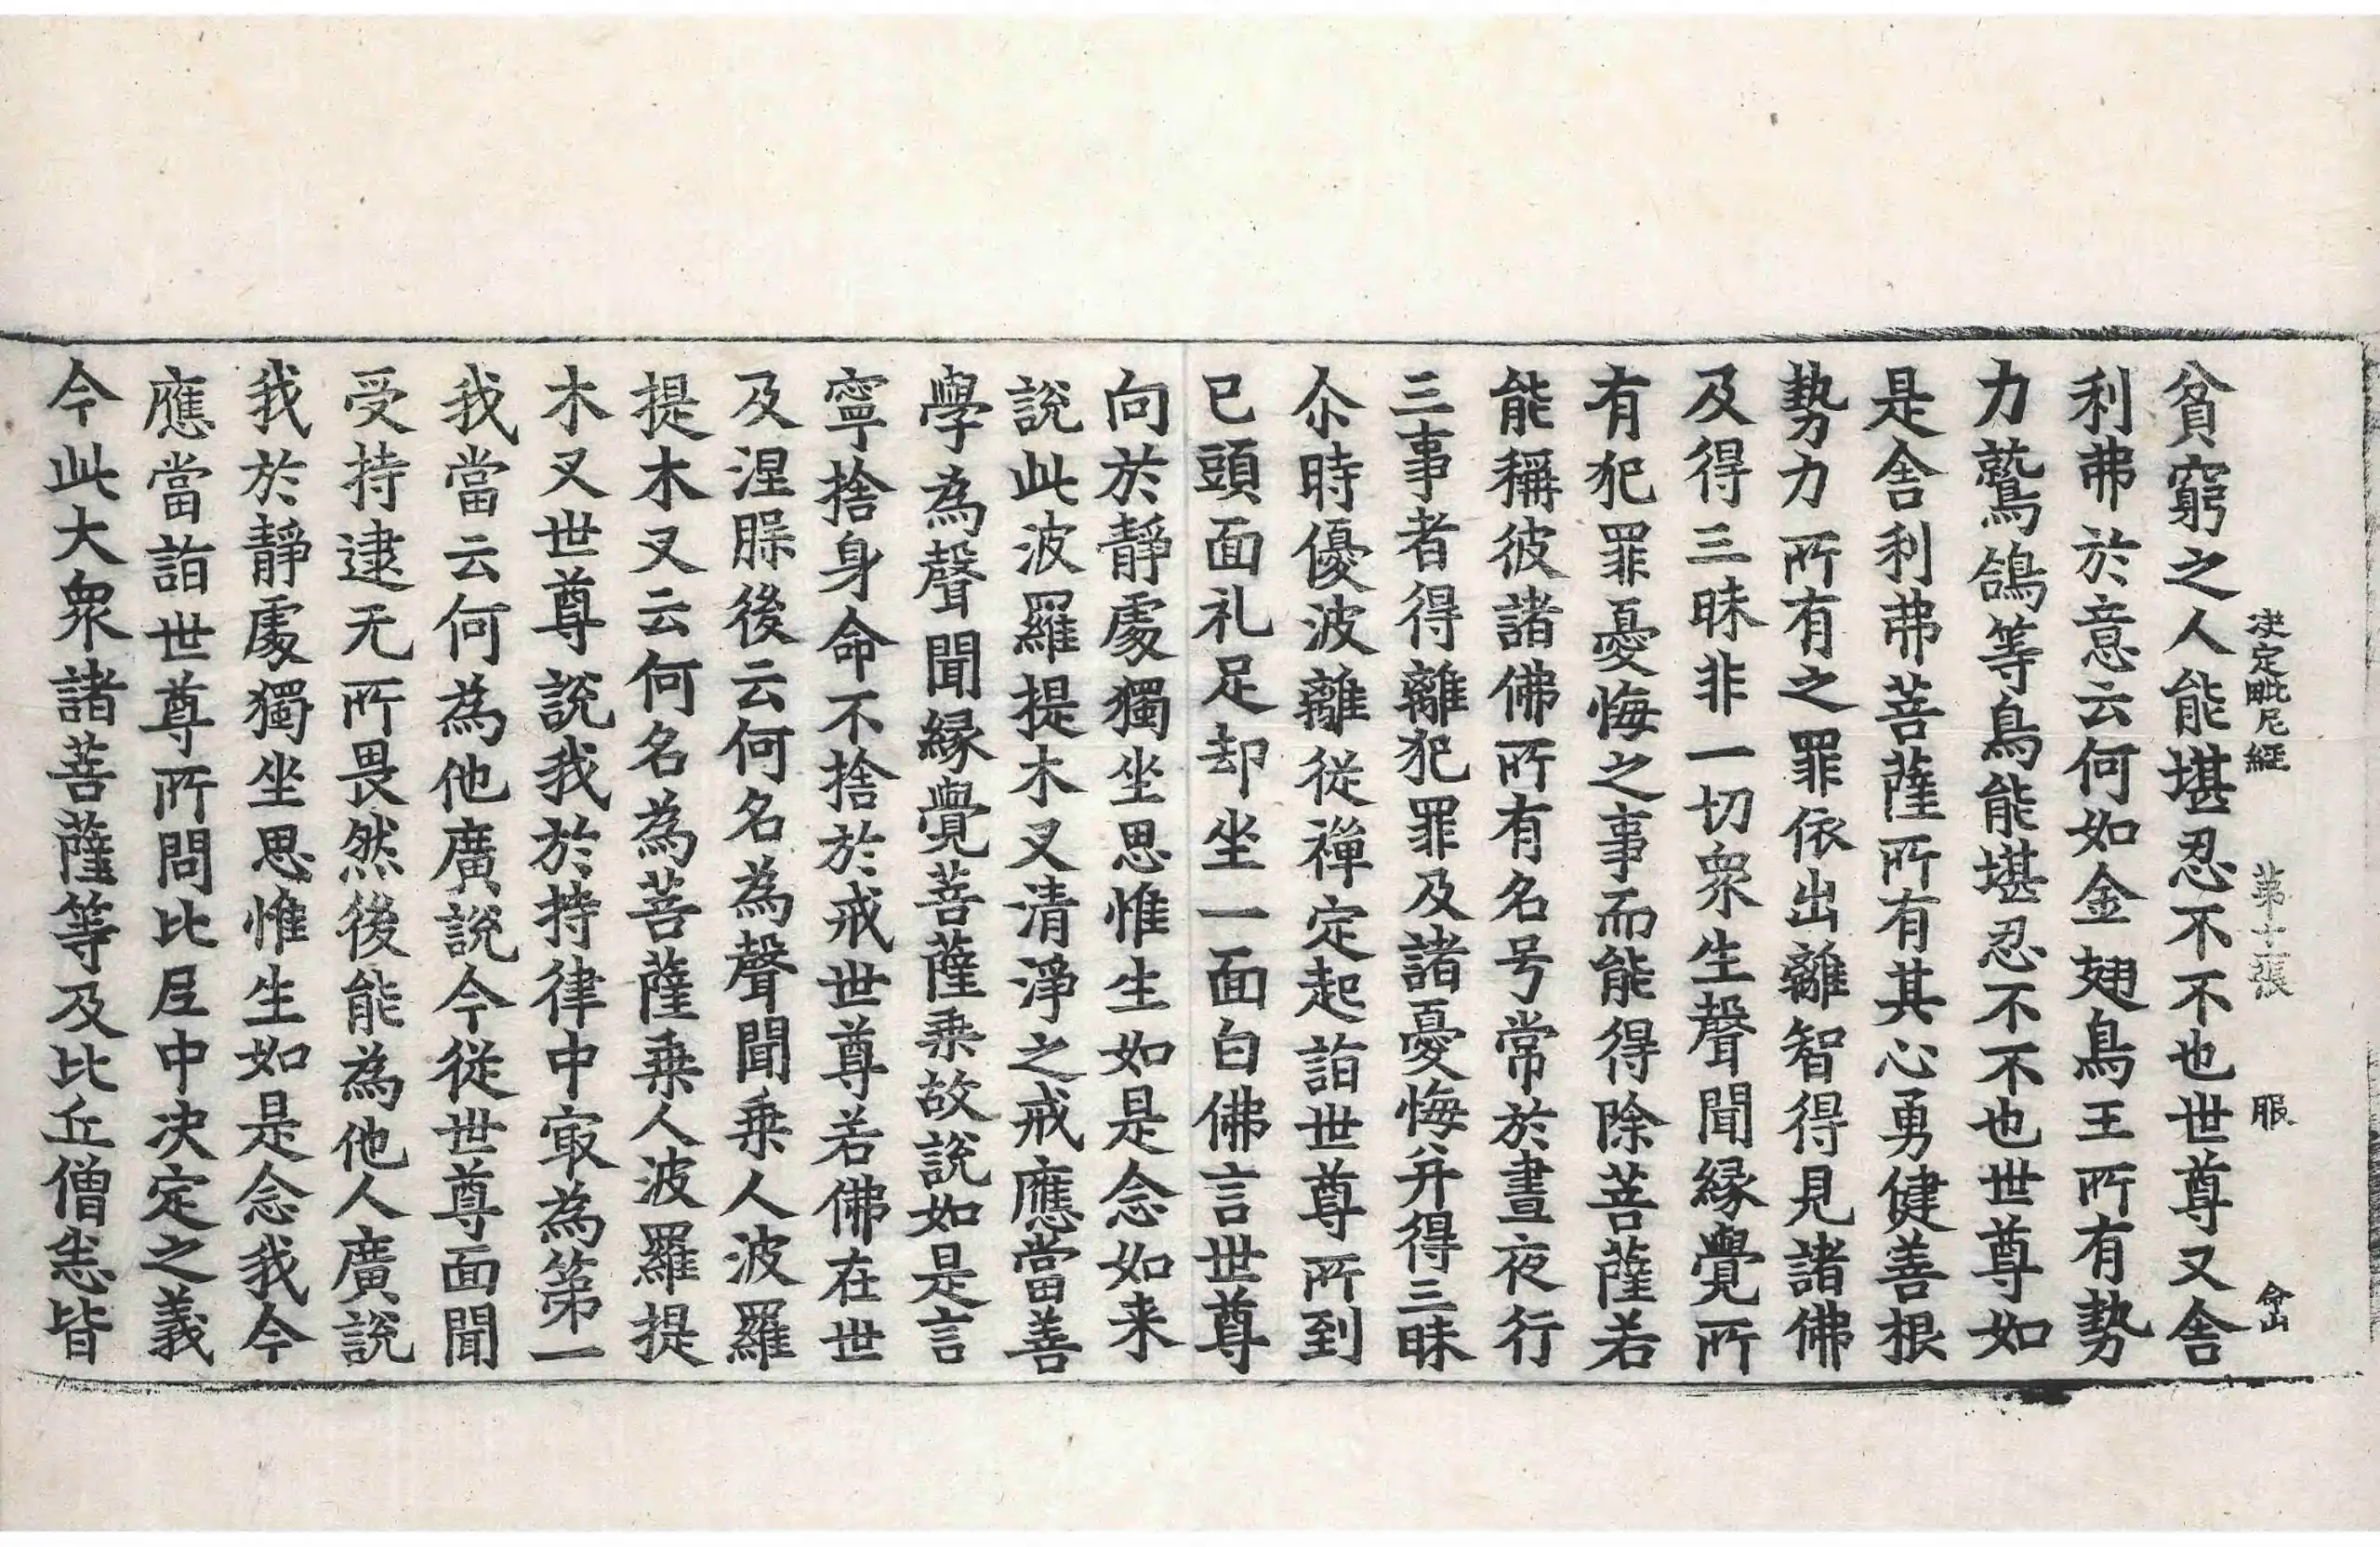 決定毗尼經 第十一張 服 命山
貧窮之人能堪忍不不也世尊又舍
利弗於意云何如金翅鳥王所有勢
力鷲鴿等鳥能堪忍不不也世尊如
是舍利弗菩薩所有其心勇健善根
勢力所有之罪依出離智得見諸佛
及得三昧非一切衆生聲聞緣覺所
有犯罪憂悔之事而能得除菩薩若
能稱彼諸佛所有名号常於晝夜行
三事者得離犯罪及諸憂悔并得三昧
尒時優波離從禪定起詣世尊所到
已頭面礼足却坐一面白佛言世尊
向於靜處獨坐思惟生如是念如来
說此波羅提木叉清淨之戒應當善
學為聲聞緣覺菩薩乘故說如是言
寧捨身命不捨於戒世尊若佛在世
及涅槃後云何名為聲聞乘人波羅
提木叉云何名為菩薩乘人波羅提
木叉世尊說我於持律中㝡為第一
我當云何為他廣說今從世尊面聞
受持逮无所畏然後能為他人廣說
我於靜處獨坐思惟生如是念我今
應當詣世尊所問比尼中決定之義
今此大衆諸菩薩等及比丘僧悉皆